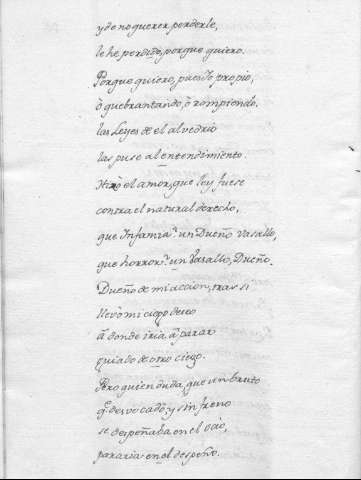 y de no querer perderle,
le he perdido, porque quiero.
Porque quiero, puesto propio,
ò quebrantando, ò rompiendo.
las Leyes de el alvedrio
las puse al entendimiento.
Hizo el amor, que ley fuese
contra el natural derecho,
que Infamia! un Dueño vasallo,
que horror! un Vasallo, Dueño.
Dueño de mi accion, tras si
llevò mi ciego deseo
à donde iria à parar
guiado de otro ciego.
Pero quien duda, que un bruto
q.e desvocado, y sin freno
se despeñaba en el ocio,
pararia en el despeño.